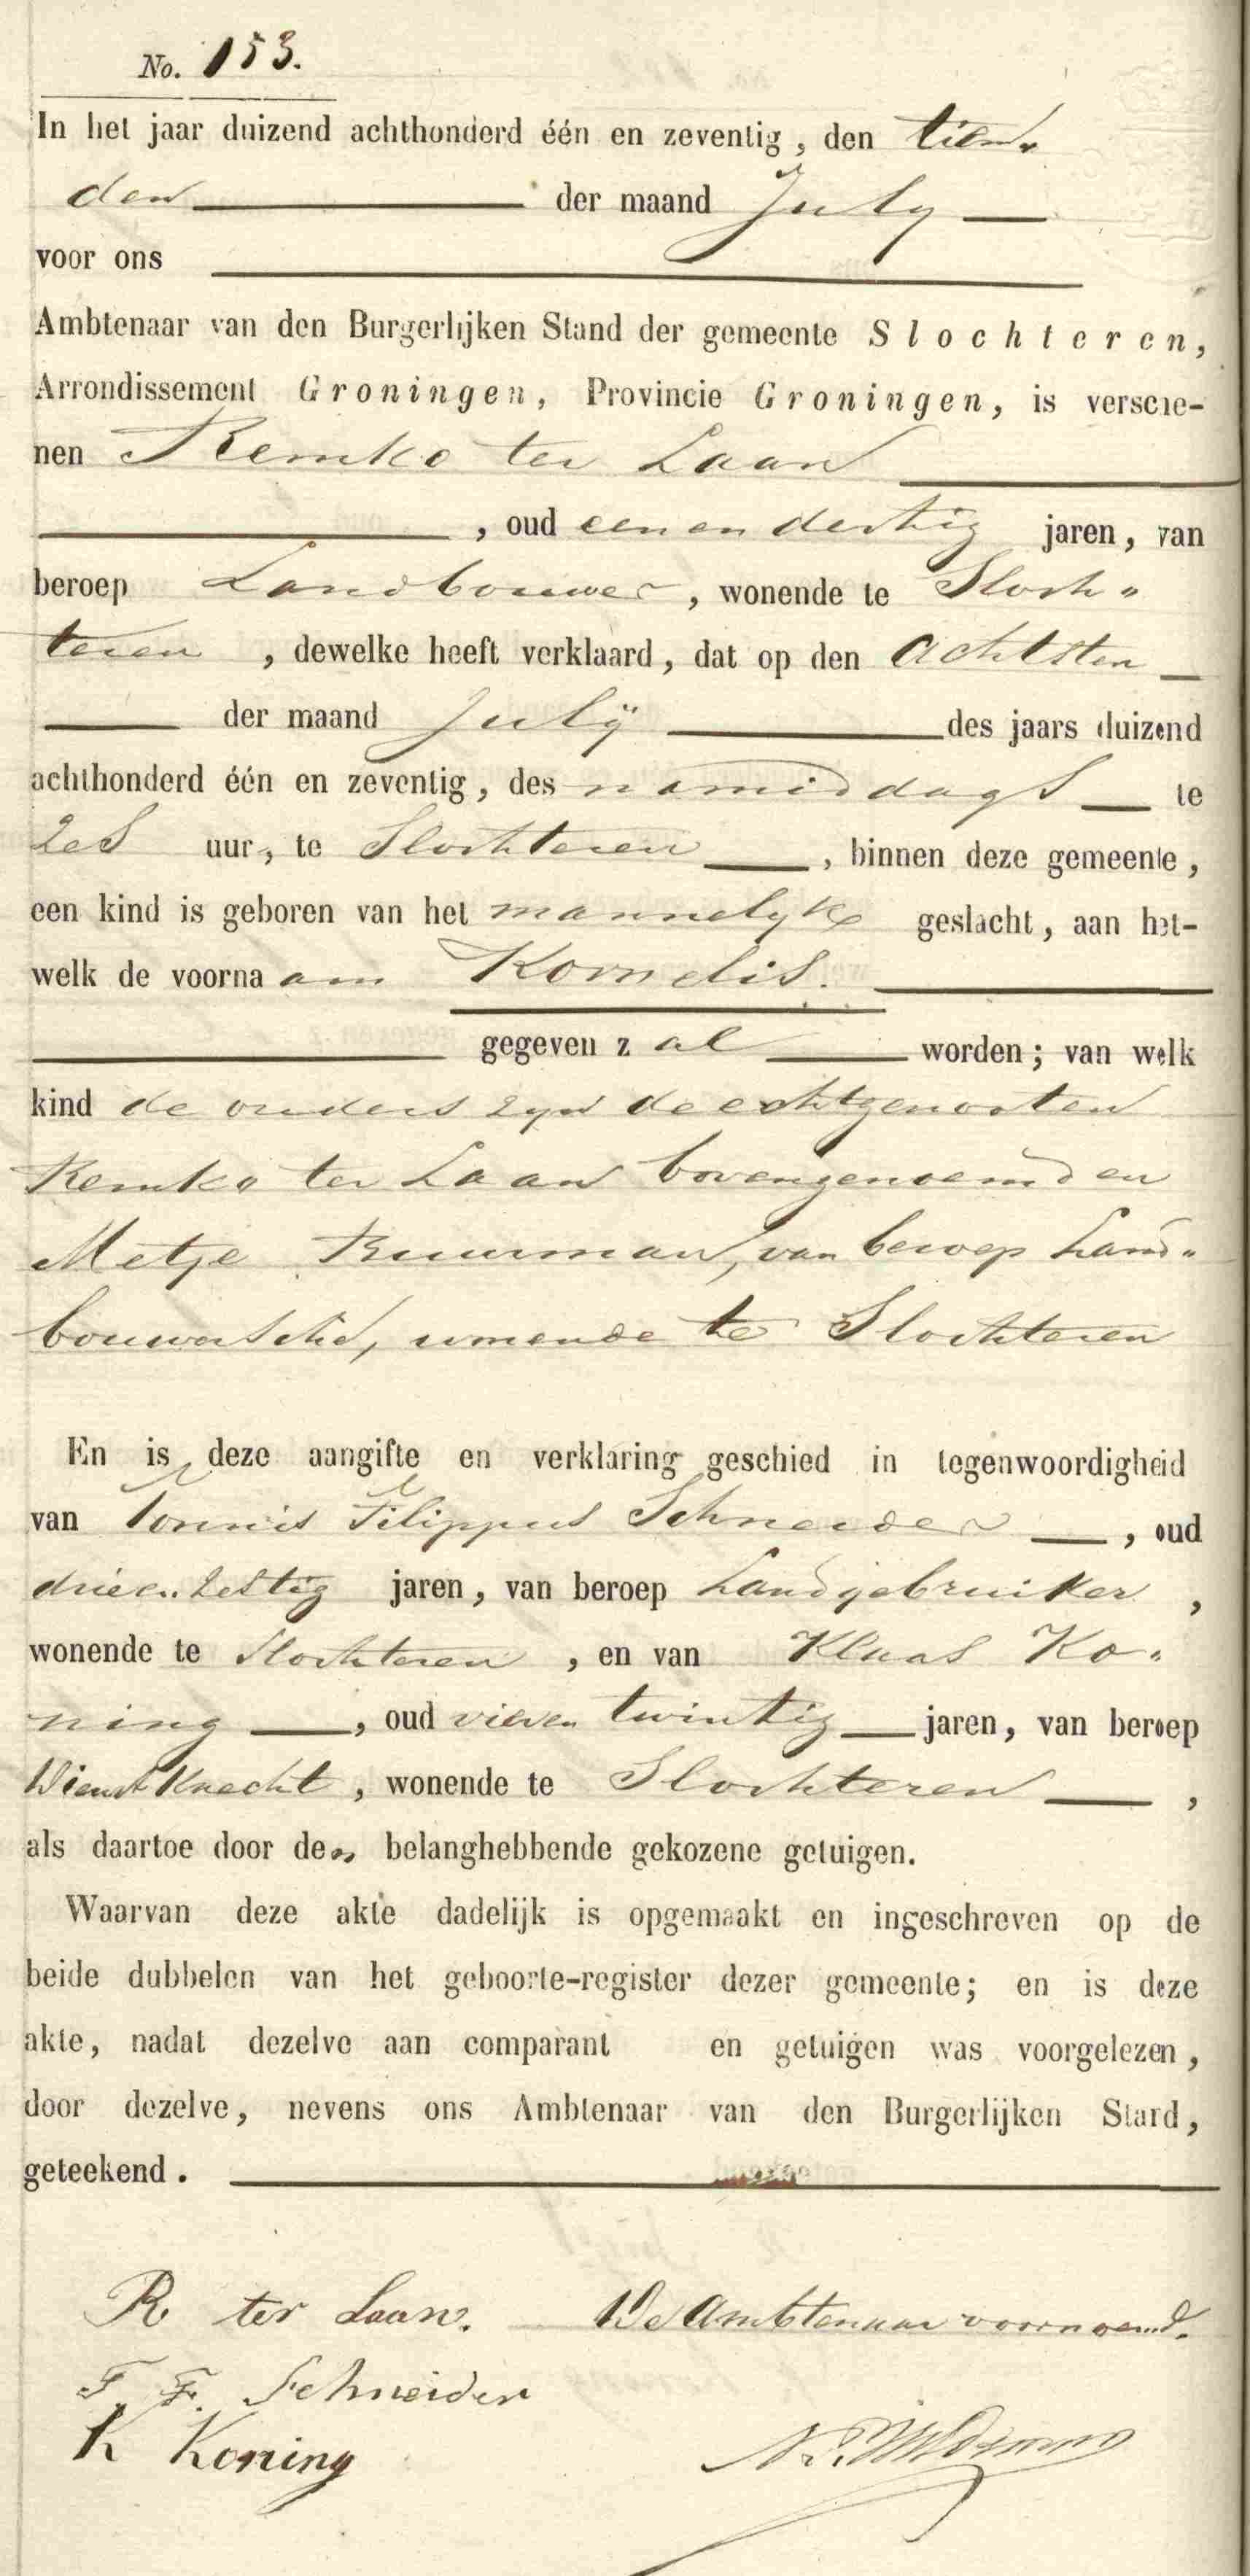 No. 153.
In het jaar duizend achthonderd één en zeventig, den tien„
den der maand July
voor ons
Ambtenaar van den Burgerlijken Stand der gemeente Slochteren,
Arrondissement Groningen, Provincie Groningen, is versche-
nen Remko ter Laan
, oud een en dertig jaren, van
beroep Landbouwer, wonende te Sloch„
teren, dewelke heeft verklaard, dat op den achtsten
der maand Julÿ des jaars duizend
achthonderd één en zeventig, des namiddags te
zes uur, te Slochteren, binnen deze gemeente,
een kind is geboren van het mannelyke geslacht, aan het-
welk de voornaam Kornelis.
gegeven zal worden; van welk
kind de ouders zyn de echtgenooten
Remko ter Laan bovengenoemd en
Metje Buurman, van beroep Land„
bouwersche, wonende te Slochteren
En is deze aangifte en verklaring geschied in tegenwoordigheid
van Tonnis Filippus Schneider, oud
drieen zestig jaren, van beroep Landgebruiker,
wonende te Slochteren, en van Klaas Ko„
ning, oud vieren twintig jaren, van beroep
Dienstknecht, wonende te Slochteren,
als daartoe door den belanghebbende gekozene getuigen.
Waarvan deze akte dadelijk is opgemaakt en ingeschreven op de
beide dubbelen van het geboorte-register dezer gemeente; en is deze
akte, nadat dezelve aan comparant en getuigen was voorgelezen,
door dezelve, nevens ons Ambtenaar van den Burgerlijken Stand,
geteekend.
R ter Laan. De Ambtenaar voornoemd.
T. F. Schneider
K Koning